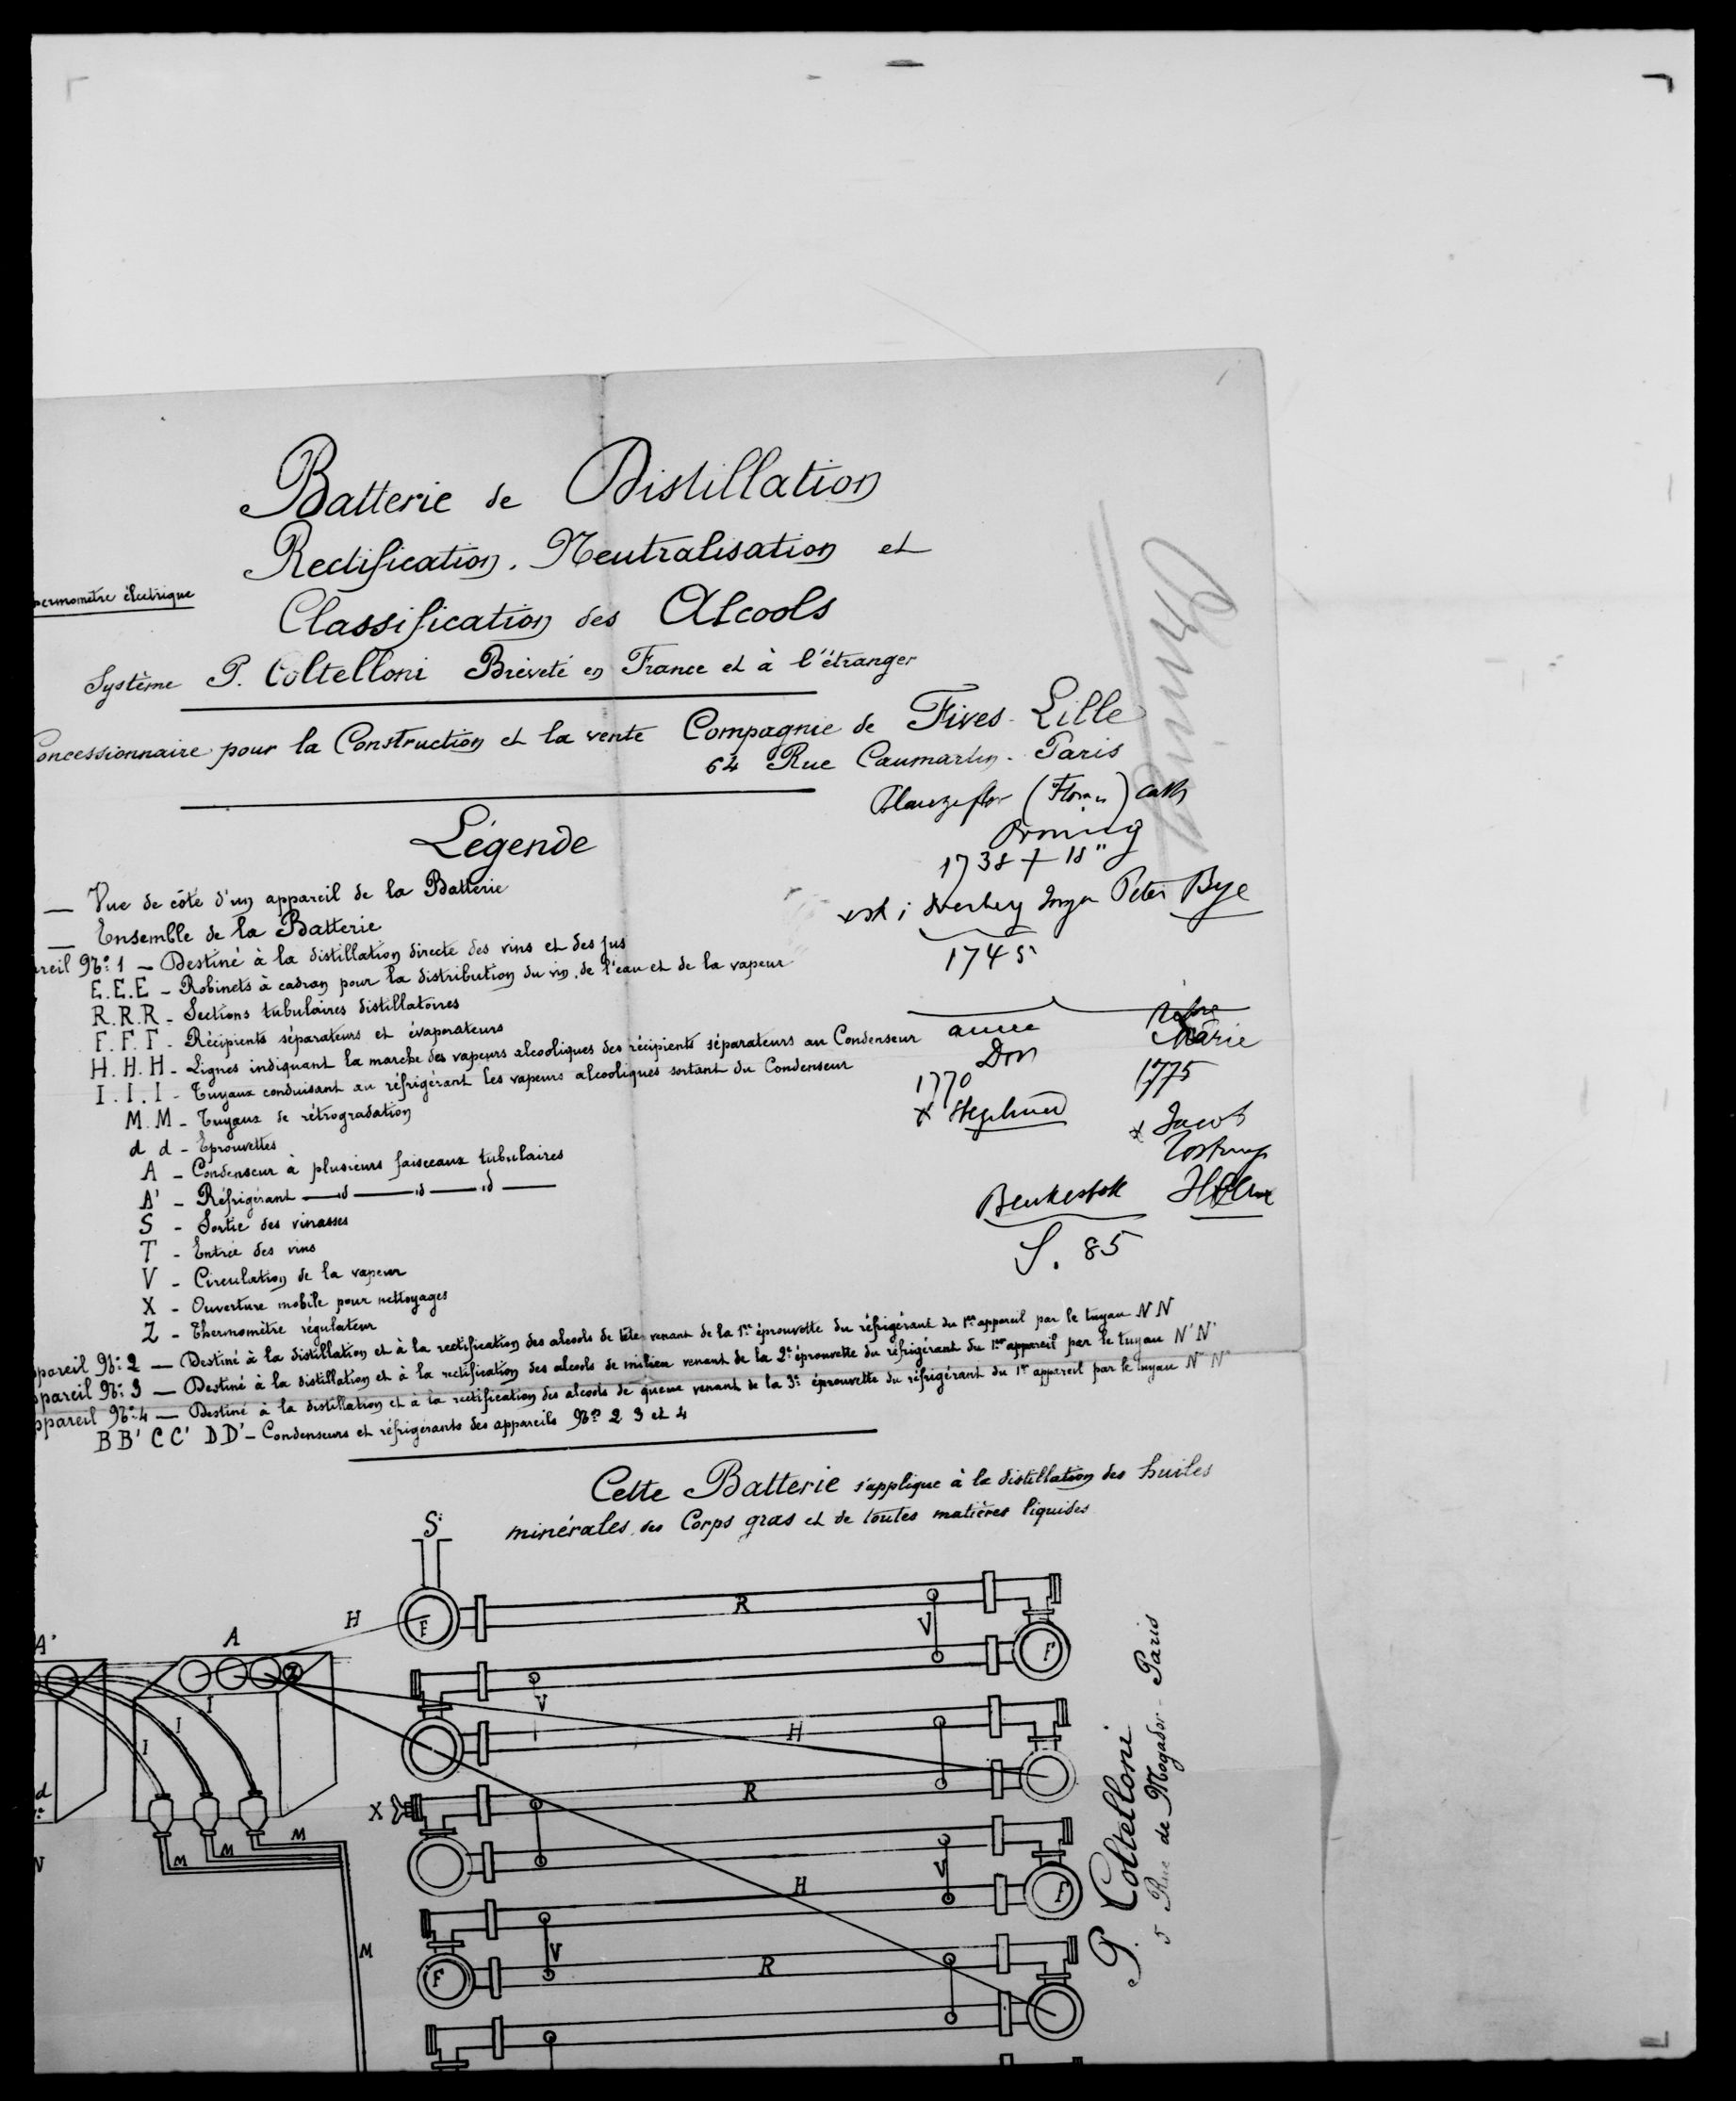 Batterie de Distillation
Rectification. Neutralisation et
Classification des Alcools
Système P. Coltelloni Bréveté en France et à l'étranger
ermomètre électrique
oncessionnaire pour la Construction et la vente Compagnie de Fives-Lille
64 Rue Caumartin. Paris
1738
Peter Bye
1745
Légende
— Vue de côté d'un appareil de la Batterie
— Ensemble de la Batterie
reil No: 1 — Destiné à la distillation directe des vins et des jus
E.E.E - Robinets à cadran pour la distribution du vin, de l'eau et de la vapeur
R.R.R - Sections tubulaires distillatoires
F.F.F - Récipients séparateurs et évaporateurs
H.H.H - Lignes indiquant la marche des vapeurs alcooliques des récipients séparateurs au Condenseur
I.I.I - Tuyaux conduisant au réfrigérant les vapeurs alcooliques sortant du Condenseur
M.M - Tuyaux de rétrogradation
d d - Eprouvettes
A - Condenseur à plusieurs faisceaux tubulaires
A' - Réfrigérant —.d —.d —.d —
S - Sortie des vinasses
T - Entrée des vins
V - Circulation de la vapeur
X - Ouverture mobile pour nettoyages
Z - Thermomètre régulateur
Marie
1770
1775
Jacob
S. 85
ppareil No: 2 — Destiné à la distillation et à la rectification des alcools de tête venant de la 1re éprouvette du réfrigérant du 1er appareil par le tuyau N N
ppareil No: 3 — Destiné à la distillation et à la rectification des alcools de milieu venant de la 2e éprouvette du réfrigérant du 1er appareil par le tuyau N' N'
ppareil No: 4 — Destiné à la distillation et à la rectification des alcools de queue venant de la 3e éprouvette du réfrigérant du 1er appareil par le tuyau N" N"
BB' CC' DD' - Condenseurs et réfrigérants des appareils Nos 2 3 et 4
Cette Batterie s'applique à la distillation des huiles
minérales, des Corps gras et de toutes matières liquides
S
F
H
R
V
F
A'
A
Z
I
I
I
V
H
X
R
M
M
M
d
N
V
F
H
M
F
V
R
P. Coltelloni
5 Rue de Mogador - Paris